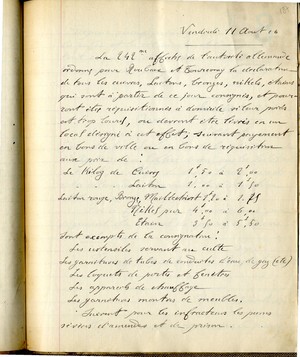 Vendredi 11 Août 16
La 242me affiche de l'autorité allemande
ordonne pour Roubaix et Tourcoing la déclaration
de tous les cuivres, Laitons, bronzes, nickels, étains
qui sont à partir de ce jour consignés, et pour-
ront être réquisitionnés à domicile si leur poids
est trop lourd, ou devront être livrés en un
local désigné à cet effet, suivant payement
en bons de ville ou en bons de réquisition
aux prix de :
Le Kilog de Cuivre 1f 50 à 2f 00
" Laiton 1f à 1f 50
Laiton rouge, Bronze, 1f 20 à 1.75
Nikel pur 4f 00 à 6.00
Etain 3f 50 à 5.50
Sont exempts de la consignation :
Les ustensiles servant au culte
Les garnitures de tubes de conduites d'eau, de gaz (etc)
Les loquets de portes et fenêtres
Les appareils de chauffage
Les garnitures de meubles.
Suivent pour les infracteurs les peines
d'amendes et de prison.